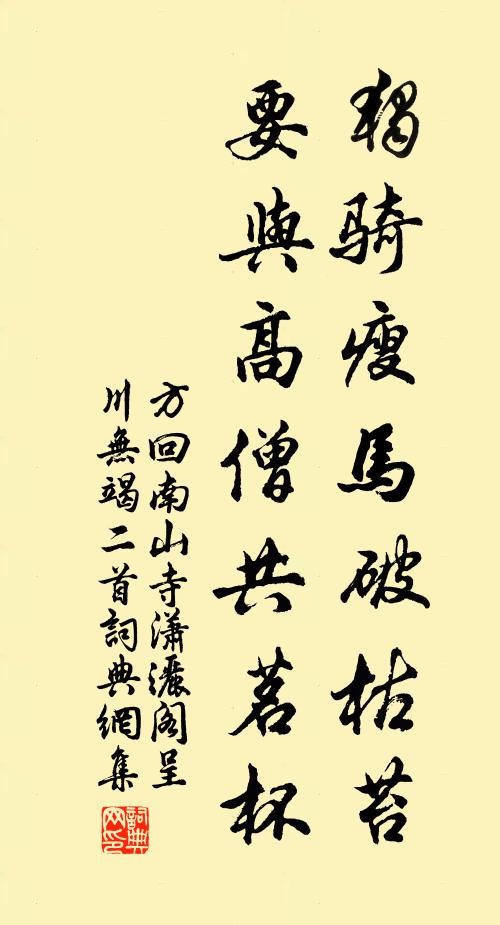 獨騎瘦馬破枯苔
要與高僧共茗杯
方回南山寺瀟灑閣呈
川無竭二首詞典網集
詞典
网印